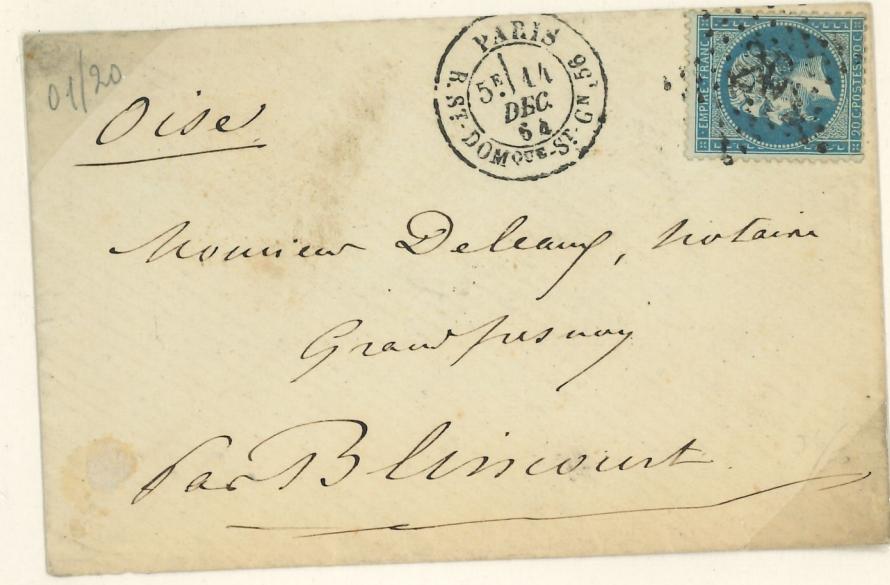 01/20
Oise
PARIS
5E 14
DEC.
64
R. ST-DOMQUE-ST-GN 56
EMPIRE FRANC
20 C POSTES 20 C
Monsieur Deleau, notaire
Grandfresnoy
Par Blincourt